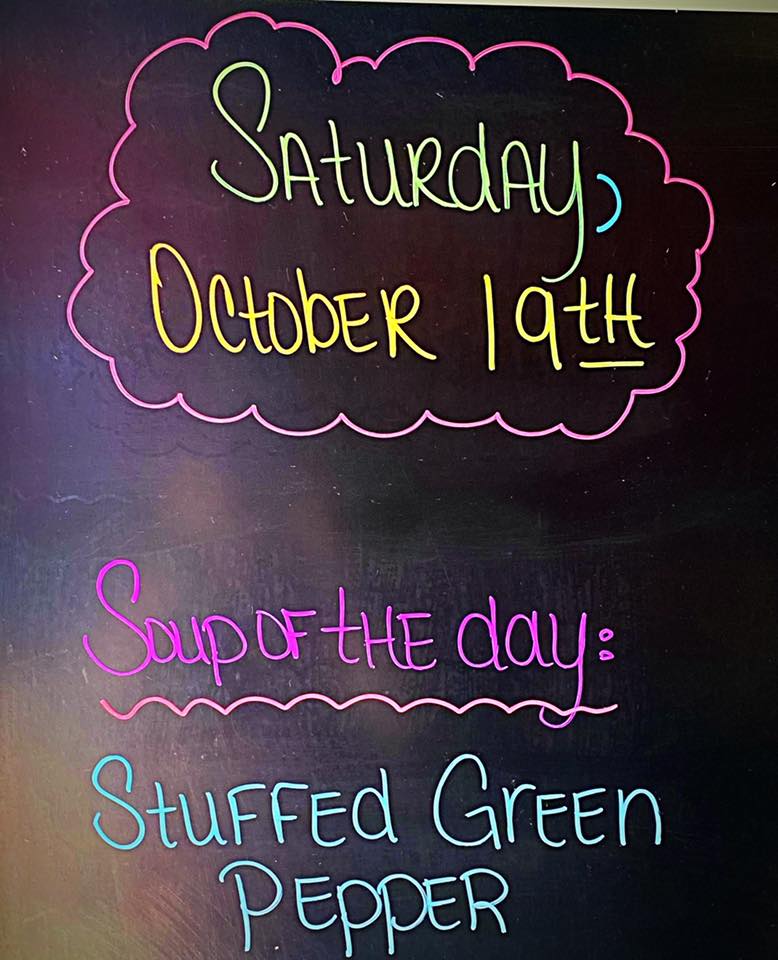 Saturday,
October 19th
Soup of the day:
Stuffed Green
Pepper